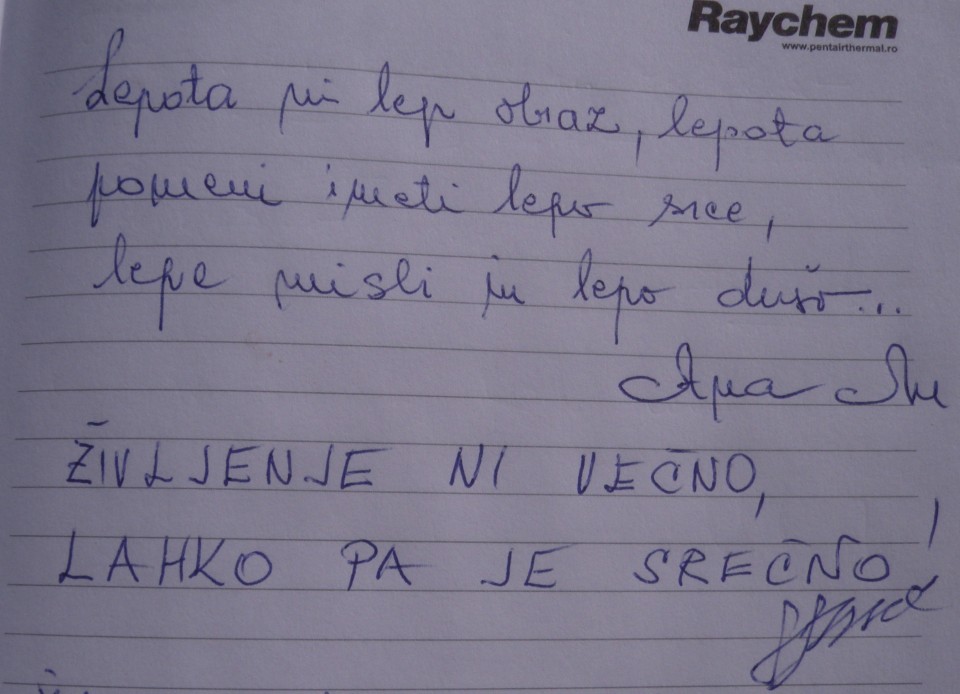 Raychem
www.pentairthermal.ro
Lepota ni lep obraz, lepota
pomeni imeti lepo srce,
lepe misli in lepo dušo...
ŽIVLJENJE NI VEČNO,
LAHKO PA JE SREČNO!